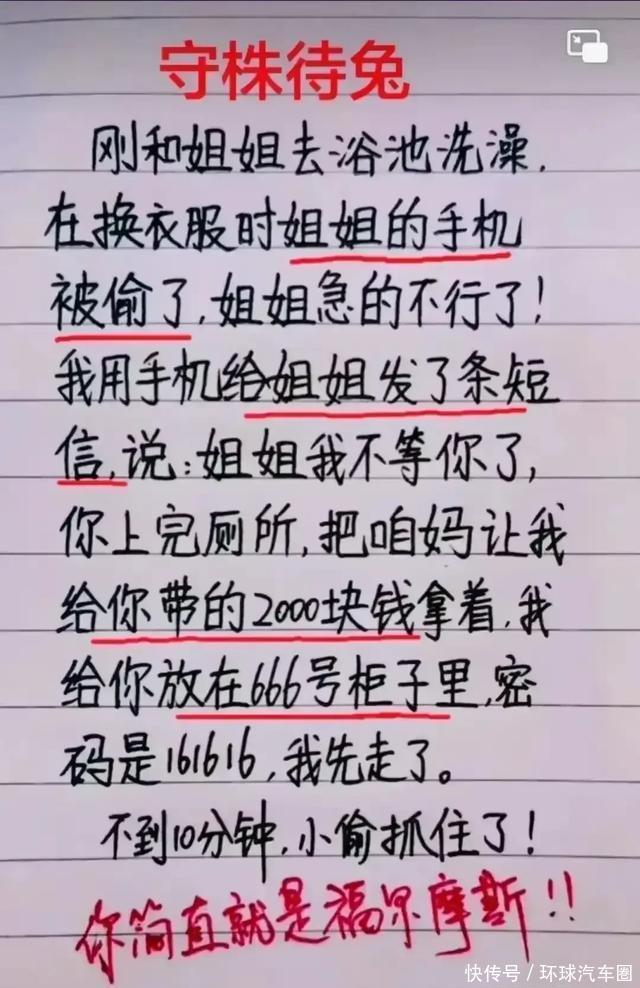 守株待兔
刚和姐姐去浴池洗澡,
在换衣服时姐姐的手机
被偷了,姐姐急的不行了!
我用手机给姐姐发了条短
信,说:姐姐我不等你了,
你上完厕所,把咱妈让我
给你带的2000块钱拿着,我
给你放在666号柜子里,密
码是161616,我先走了。
不到10分钟,小偷抓住了!
你简直就是福尔摩斯!!
快传号/环球汽车圈